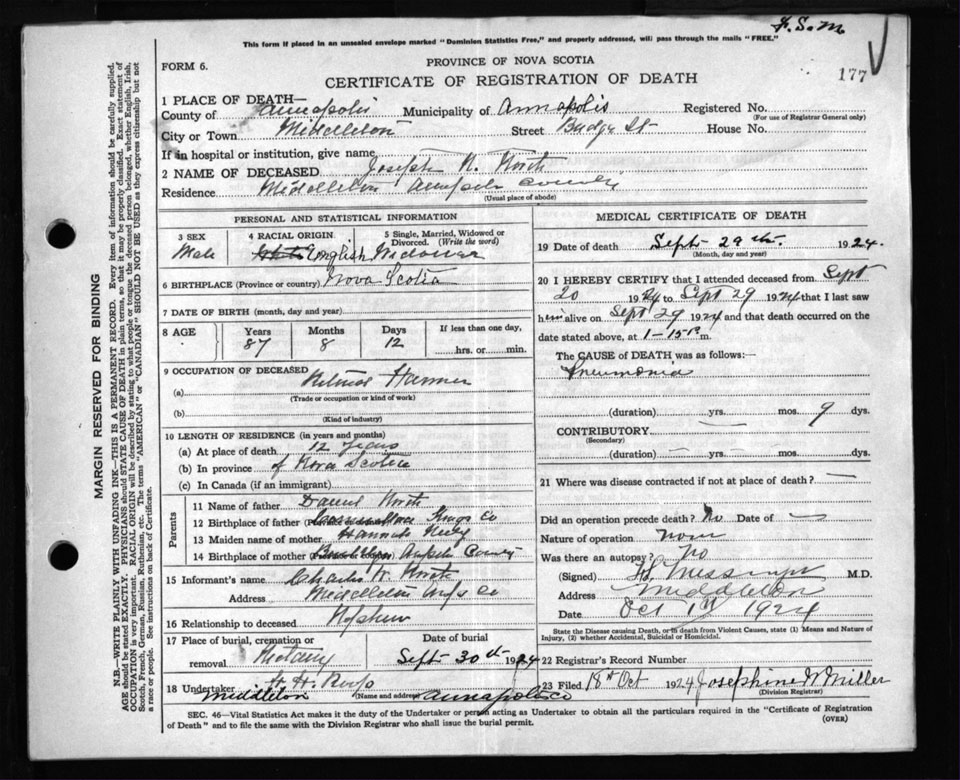 F. S. M.
This form if placed in an unsealed envelope marked "Dominion Statistics Free," and properly addressed, will pass through the mails "FREE."
177
FORM 6.
PROVINCE OF NOVA SCOTIA
CERTIFICATE OF REGISTRATION OF DEATH
1 PLACE OF DEATH—
County of Annapolis Municipality of Annapolis Registered No.
(For use of Registrar General only)
City or Town Middleton Street St House No.
If in hospital or institution, give name
2 NAME OF DECEASED Joseph N. North
Residence Middleton Annapolis County
(Usual place of abode)
PERSONAL AND STATISTICAL INFORMATION
3 SEX 4 RACIAL ORIGIN 5 Single, Married, Widowed or Divorced. (Write the word)
Male English Widower
6 BIRTHPLACE (Province or country) Nova Scotia
7 DATE OF BIRTH (month, day and year)
8 AGE Years Months Days If less than one day,
87 8 12 hrs. or min.
9 OCCUPATION OF DECEASED
(a) Retired Farmer
(Trade or occupation or kind of work)
(b)
(Kind of industry)
10 LENGTH OF RESIDENCE (in years and months)
(a) At place of death 12 years
(b) In province of Nova Scotia
(c) In Canada (if an immigrant)
Parents
11 Name of father Daniel North
12 Birthplace of father Kings Co
13 Maiden name of mother Hannah
14 Birthplace of mother County
15 Informant's name Charles North
Address Middleton Co
16 Relationship to deceased Nephew
17 Place of burial, cremation or removal Date of burial
Sept 30th 1924
18 Undertaker
Middleton (Name and address) Annapolis Co
MEDICAL CERTIFICATE OF DEATH
19 Date of death Sept 29th 1924.
(Month, day and year)
20 I HEREBY CERTIFY that I attended deceased from Sept
20 1924 to Sept 29 1924 that I last saw
him alive on Sept 29 1924 and that death occurred on the
date stated above, at 1-15 P m.
The CAUSE OF DEATH was as follows:—
Pneumonia
(duration) yrs. mos. 9 dys.
CONTRIBUTORY
(Secondary)
(duration) yrs. mos. dys.
21 Where was disease contracted if not at place of death?
Did an operation precede death? No Date of
Nature of operation None
Was there an autopsy? No
(Signed) Messinger M.D.
Address Middleton
Date Oct 1st 1924
State the Disease causing Death, or in death from Violent Causes, state (1) Means and Nature of
Injury, (2) whether Accidental, Suicidal or Homicidal.
22 Registrar's Record Number
23 Filed 18th Oct 1924 Josephine W Miller
(Division Registrar)
SEC. 46—Vital Statistics Act makes it the duty of the Undertaker or person acting as Undertaker to obtain all the particulars required in the "Certificate of Registration
of Death" and to file the same with the Division Registrar who shall issue the burial permit.
(OVER)
MARGIN RESERVED FOR BINDING
N.B.—WRITE PLAINLY WITH UNFADING INK—THIS IS A PERMANENT RECORD. Every item of information should be carefully supplied.
AGE should be stated EXACTLY. PHYSICIANS should STATE CAUSE OF DEATH in plain terms, so that it may be properly classified. Exact statement of
OCCUPATION is very important. RACIAL ORIGIN will be described by stating to what people or tongue the deceased person belonged, whether English, Irish,
Scotch, French, German, Russian, Ruthenian, etc. The terms "AMERICAN" or "CANADIAN" SHOULD NOT BE USED as they express citizenship but not
a race or people. See instructions on back of Certificate.